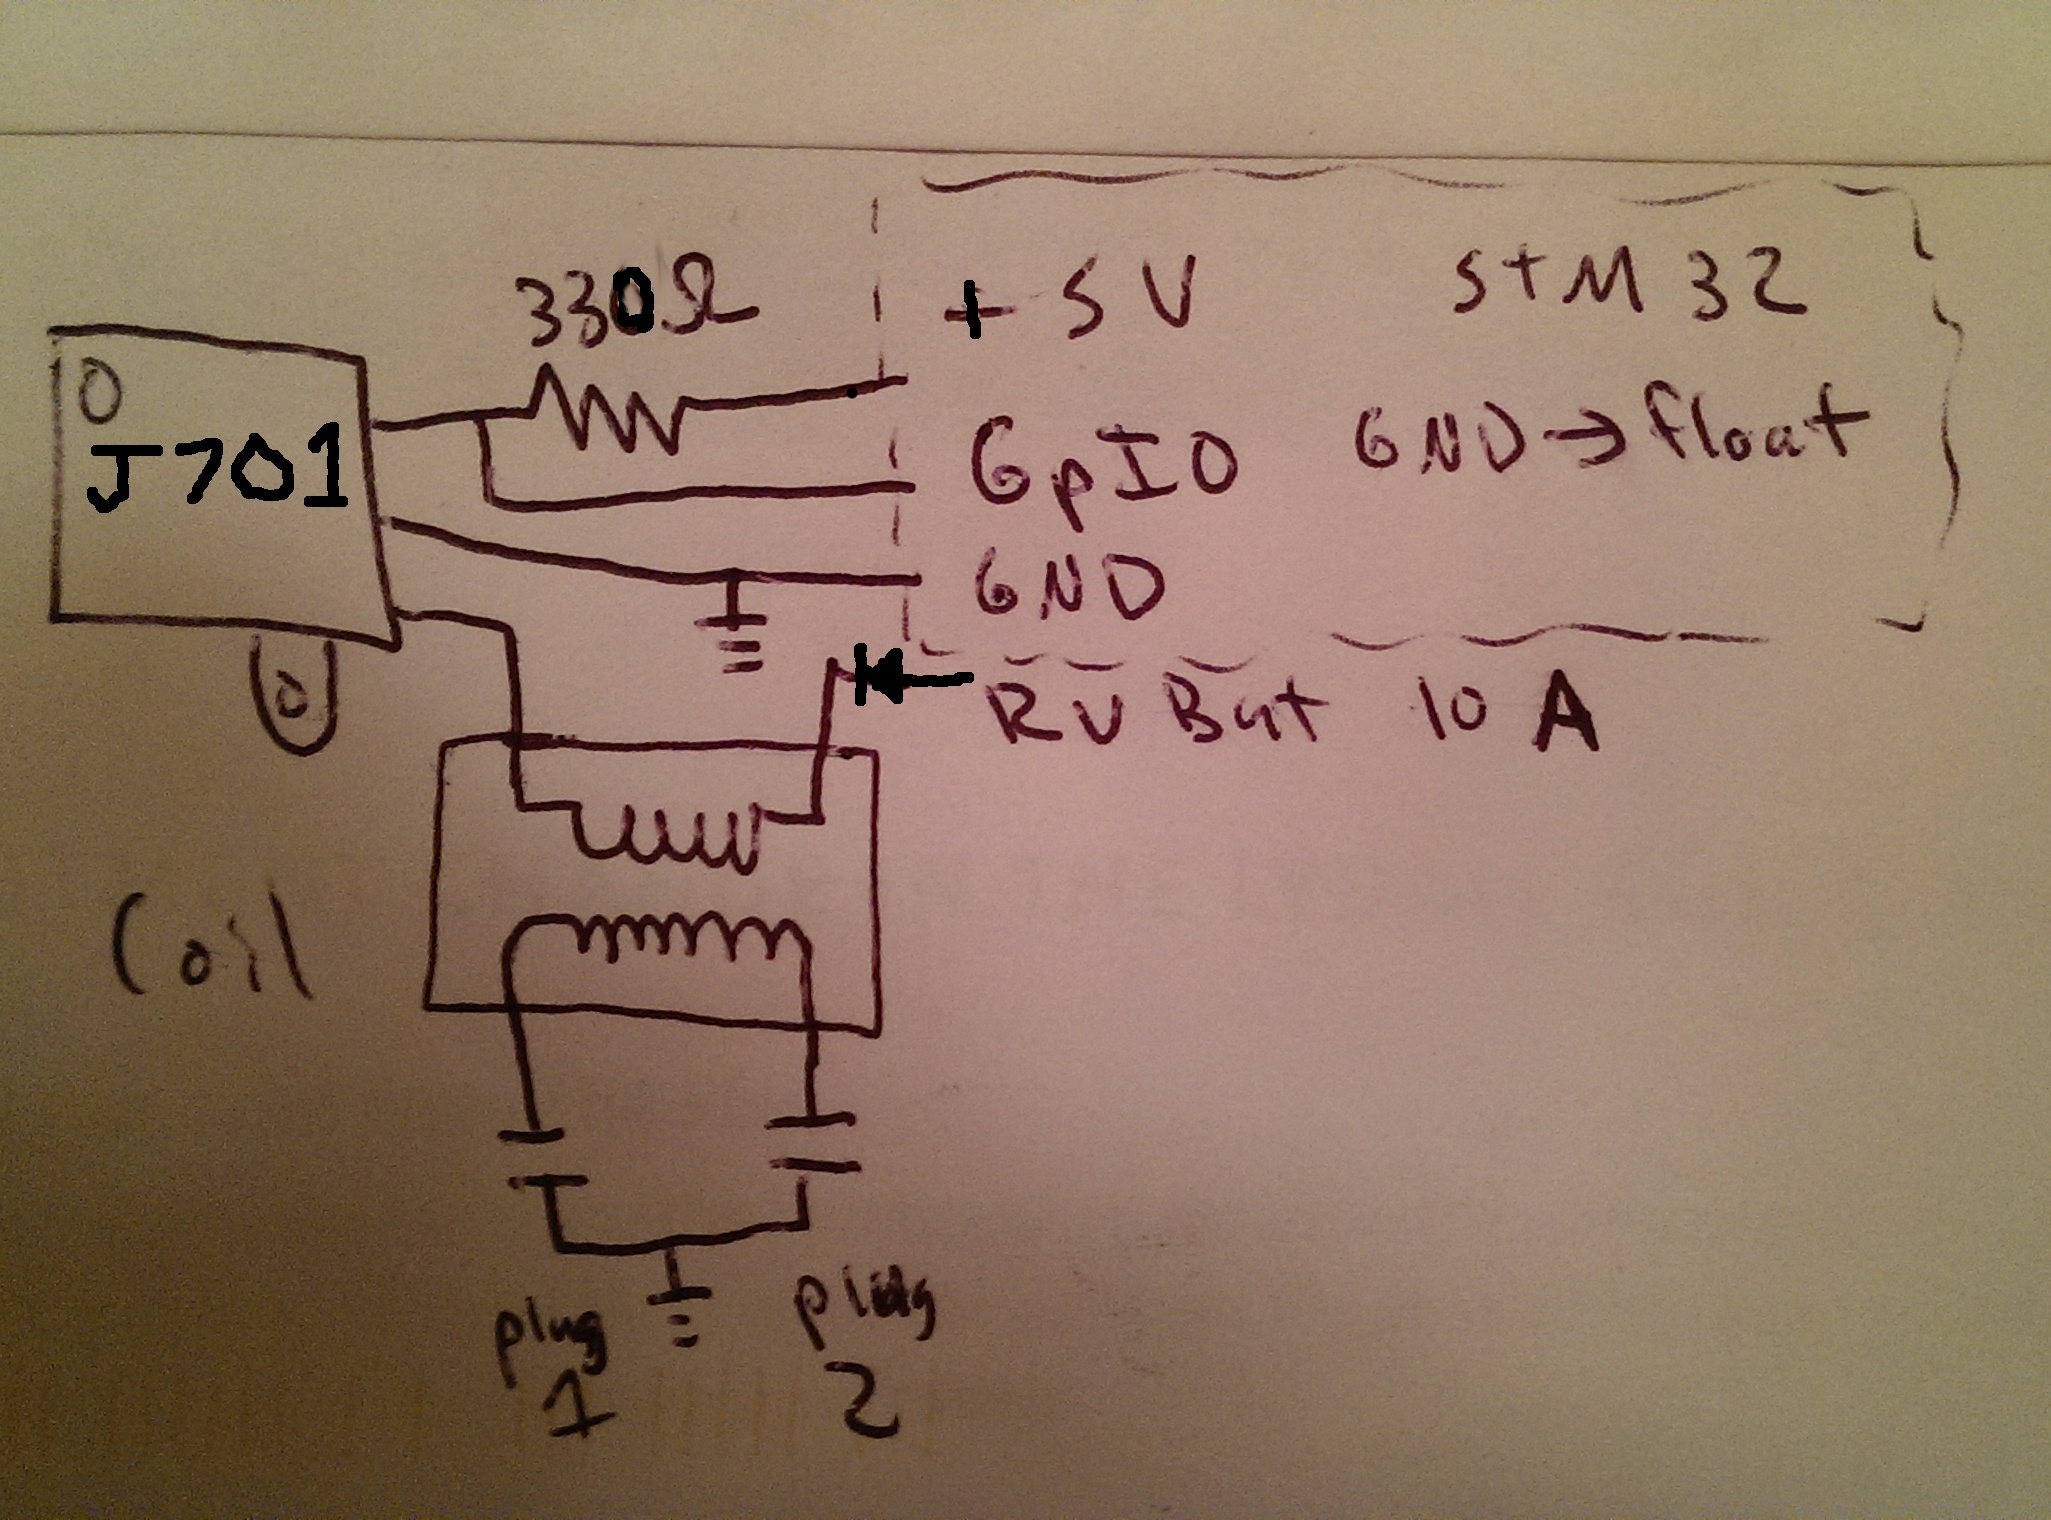 330Ω
+ 5V
STM 32
O
J701
GPIO
GND → float
GND
O
RV Bat 10 A
Coil
plug
1
plug
2